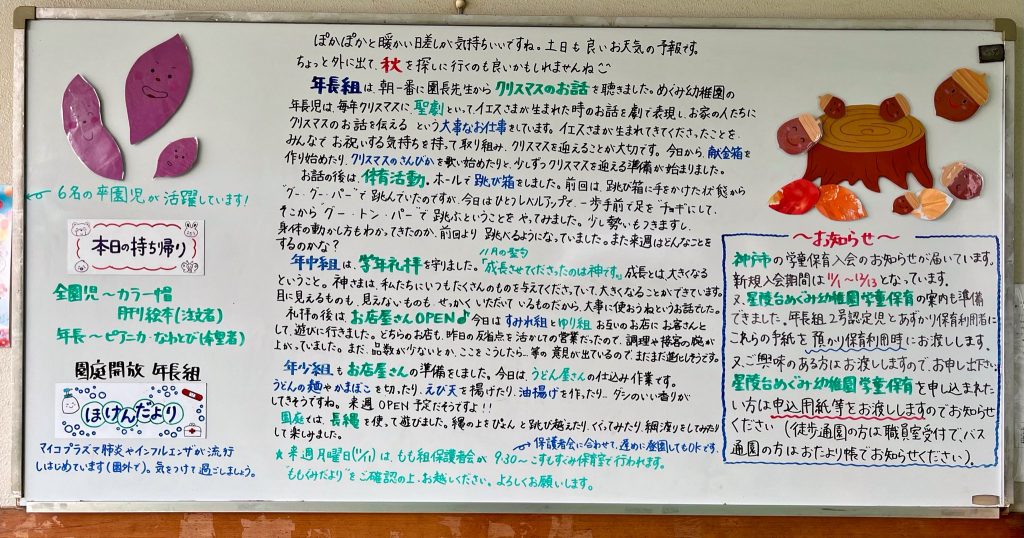 ぽかぽかと暖かい日差しが気持ちいいですね。土日も良いお天気の予報です。
ちょっと外に出て、秋を探しに行くのも良いかもしれませんね
年長組は、朝一番に園長先生からクリスマスのお話を聴きました。めぐみ幼稚園の
年長児は、毎年クリスマスに聖劇といってイエスさまが生まれた時のお話を劇で表現し、お家の人たちに
クリスマスのお話を伝えるという大事なお仕事をしています。イエスさまが生まれてきてくださったことを、
みんなでお祝いする気持ちを持って取り組み、クリスマスを迎えることが大切です。今日から、献金箱を
作り始めたり、クリスマスのさんびかを歌い始めたりと、少しずつクリスマスを迎える準備が始まりました。
お話の後は、体育活動。ホールで跳び箱をしました。前回は、跳び箱に手をかけた状態から
"グー・グー・パー"で跳んでいたのですが、今日はひとつレベルアップで、一歩手前で足を"チョキ"にして、
そこから"グー・トン・パー"で跳ぶということをやってみました。少し勢いもつきますし、
身体の動かし方もわかってきたのか、前回より跳べるようになっていました。また来週はどんなことを
するのかな?
11月の聖句
年中組は、学年礼拝を守りました。「成長させてくださったのは神です。」成長とは、大きくなる
ということ。神さまは、私たちにいつもたくさんのものを与えてくださっていて、大きくなることができています。
目に見えるものも、見えないものも、せっかくいただいているものだから、大事に使おうねというお話でした。
礼拝の後は、お店屋さんOPEN♪今日はすみれ組とゆり組お互いのお店にお客さんと
して、遊びに行きました。どちらのお店も、昨日の反省点を活かしての営業だったので、調理や接客の腕が
上がっていました。まだ、品数が少ないとか、ここをこうしたら…等の意見が出ているので、まだまだ進化しそうです。
年少組もお店屋さんの準備をしました。今日は、うどん屋さんの仕込み作業です。
うどんの麺やかまぼこを切ったり、えび天を揚げたり、油揚げを作ったり…ダシのいい香りが
してきそうですね。来週OPEN予定だそうですよ!!
園庭では、長縄を使って遊びました。縄の上をぴょんと跳び越えたり、くぐってみたり、綱渡りをしてみたり
して楽しみました。
保護者会に合わせて、遅めに登園してもOKです。
★来週月曜日(11/11)は、もも組保護者会が9:30～こすもすぐみ保育室で行われます。
"ももぐみだより"をご確認の上、お越しください。よろしくお願いします。
6名の卒園児が活躍しています!
本日の持ち帰り
全園児～カラー帽
月刊絵本(注文者)
年長～ピアニカ・なわとび(希望者)
園庭開放 年長組
ほけんだより
マイコプラズマ肺炎やインフルエンザが流行
しはじめています(園外で)。気をつけて過ごしましょう。
～お知らせ～
神戸市の学童保育入会のお知らせが届いています。
新規入会期間は11/1～12/13となっています。
又、星陵台めぐみ幼稚園学童保育の案内も準備
できました。年長組、2号認定児とあずかり保育利用者に
これらの手紙を預かり保育利用時にお渡しします。
又、ご興味のある方はお渡ししますので、お申し出下さい。
星陵台めぐみ幼稚園学童保育を申し込まれた
い方は申込用紙等をお渡ししますのでお知らせ
ください(徒歩通園の方は職員室受付で、バス
通園の方はおたより帳でお知らせください)。